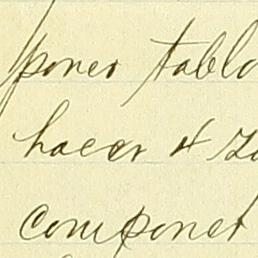 poner tablo
hacer
componer